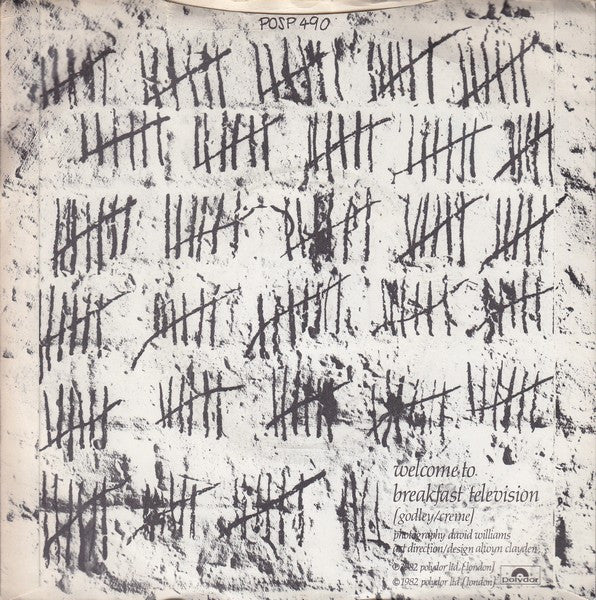 POSP 490
welcome to
breakfast television
[godley/creme]
photography david williams
art direction/design alwyn clayden
℗1982 polydor ltd. [london]
©1982 polydor ltd. [london]
Polydor